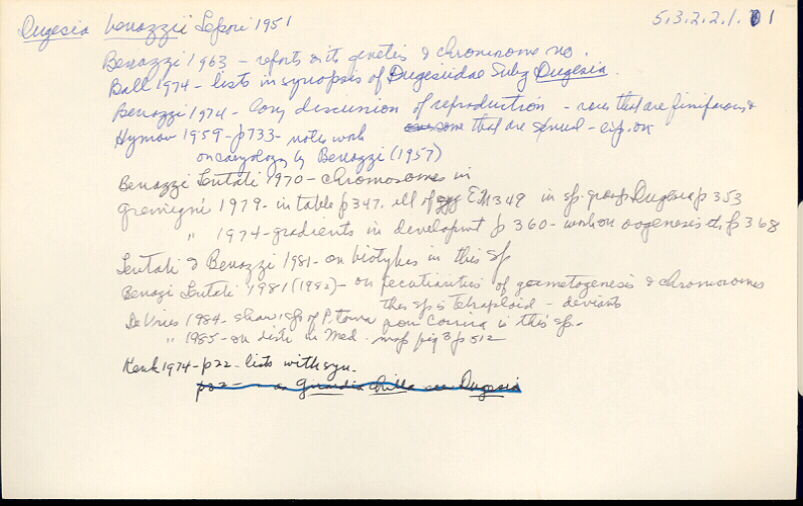 Dugesia benazzii Lepori 1951 5.3.2.2.1.01
Benazzi 1963 - reports on its genetics & chromosome no.
Ball 1974 - lists in synopsis of Dugesiidae Subg Dugesia.
Benazzi 1974 - long discussion of reproduction - races that are fissiparous &
Hyman 1959 - p733 - notes work that are sexual - exp. on
on caryology by Benazzi (1957)
Benazzi Lentati 1970 - chromosomes in
Gremigni 1979 - in table p347. all of egg EM 349 in sp. group Dugesia p 353
" 1974 - gradients in developmt p 360 - work on oogenesis p 368
Lentati & Benazzi 1981 - on biotypes in this sp
Benazzi Lentati 1981 (1982) - on pecularities of gametogenesis & chromosomes
this sp is tetraploid - deviants
De Vries 1984 - shows sp of P. torva from Corsica is this sp.
" 1985 - on distr in Med. map fig 3 p 512
Kenk 1974 - p22 - lists with syn.
p22 - as Girardia Dugesia